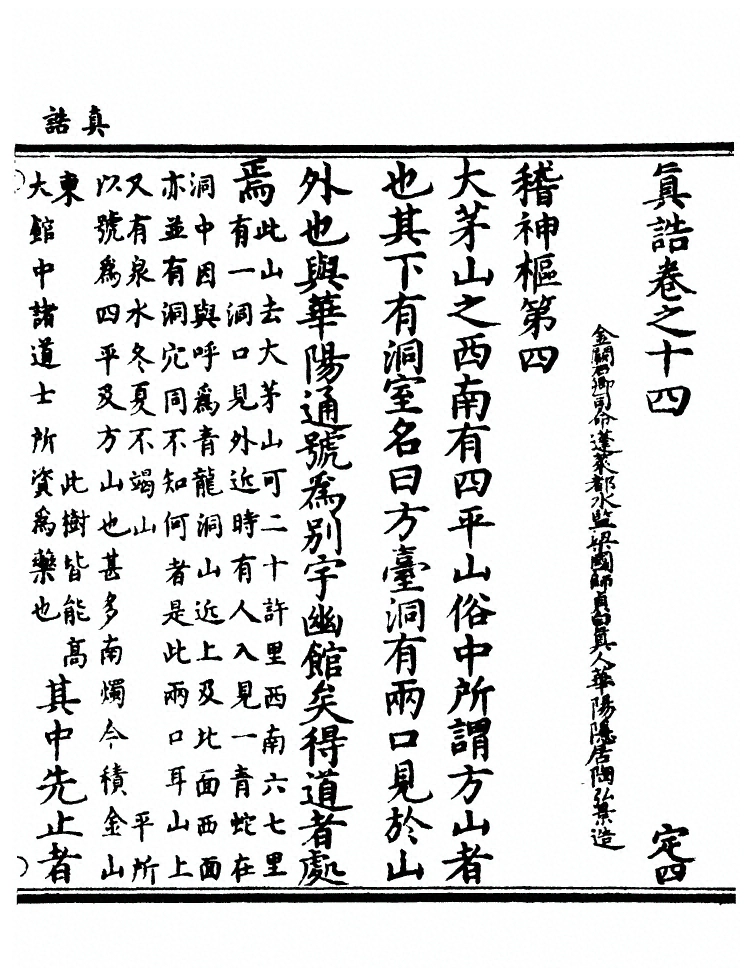 真誥
眞誥卷之十四 定四
金闕右卿司命蓬萊都水監梁國師貞白眞人華陽隱居陶弘景造
稽神樞第四
大茅山之西南有四平山俗中所謂方山者
也其下有洞室名曰方臺洞有兩口見於山
外也與華陽通號爲別宇幽館矣得道者處
焉此山去大茅山可二十許里西南六七里
有一洞口見外近時有人入見一青蛇在
洞中因與呼爲青龍洞山近上及北面西面
亦並有洞穴同不知何者是此兩口耳山上
又有泉水冬夏不竭山 平所
以號爲四平及方山也甚多南燭今積金山
東 此樹皆能高
大館中諸道士所資爲藥也
其中先止者